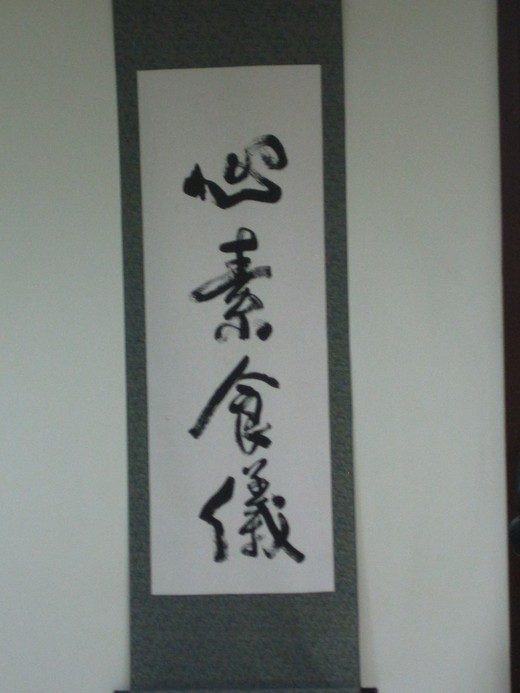 心素食儀